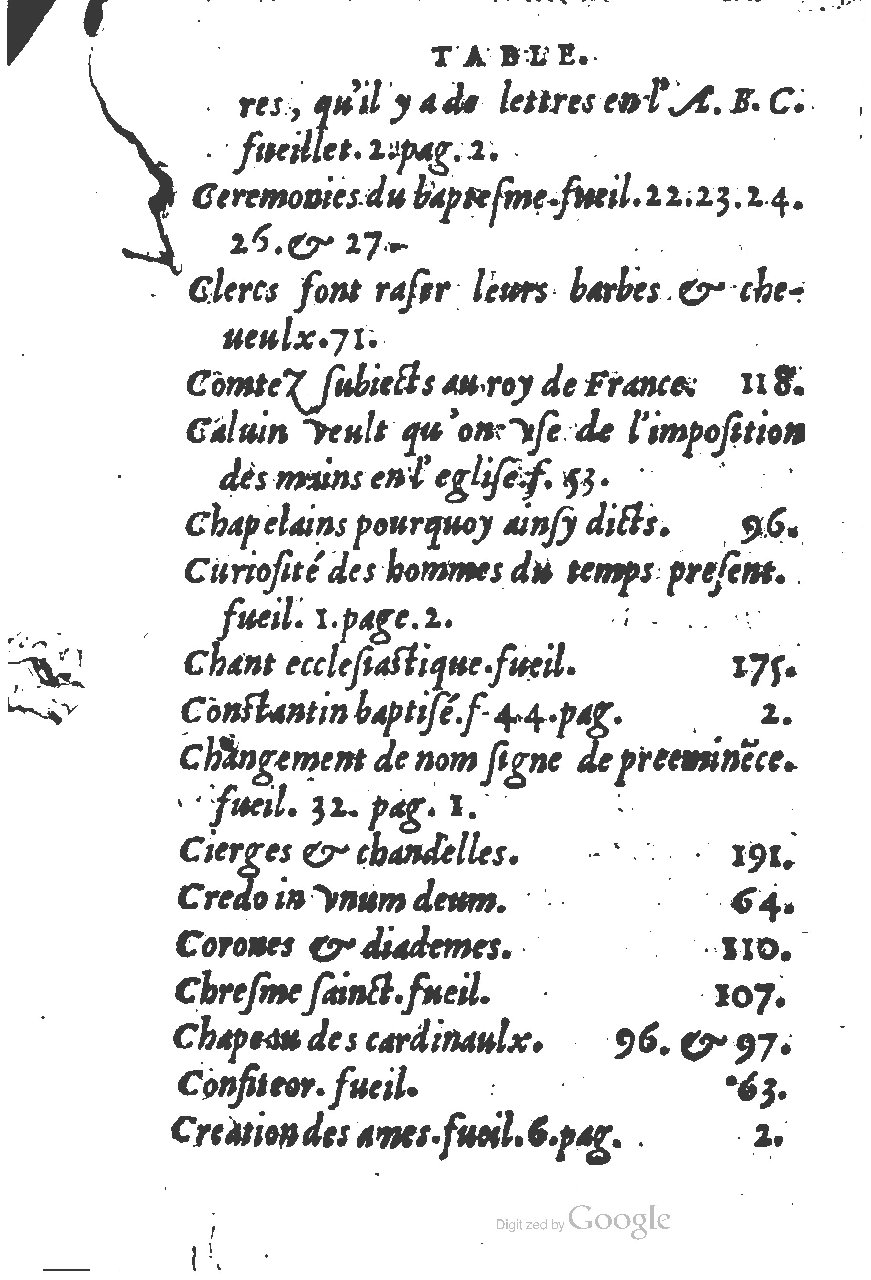 TABLE.
res, qu'il y a de lettres en l'A. B. C.
fueillet. 2. pag. 2.
Ceremonies du baptesme. fueil. 22. 23. 24.
26. & 27.
Clercs font raser leurs barbes & che-
ueulx. 71.
Comtez subiects au roy de France. 118.
Caluin veult qu'on vse de l'imposition
des mains en l'eglise. f. 53.
Chapelains pourquoy ainsy dicts. 96.
Curiosité des hommes du temps present.
fueil. 1. page. 2.
Chant ecclesiastique. fueil. 175.
Constantin baptisé. f. 44. pag. 2.
Changement de nom signe de preeminẽce.
fueil. 32. pag. 1.
Cierges & chandelles. 191.
Credo in vnum deum. 64.
Corones & diademes. 110.
Chresme sainct. fueil. 107.
Chapeau des cardinaulx. 96. & 97.
Confiteor. fueil. 63.
Creation des ames. fueil. 6. pag. 2.
Digitized by Google